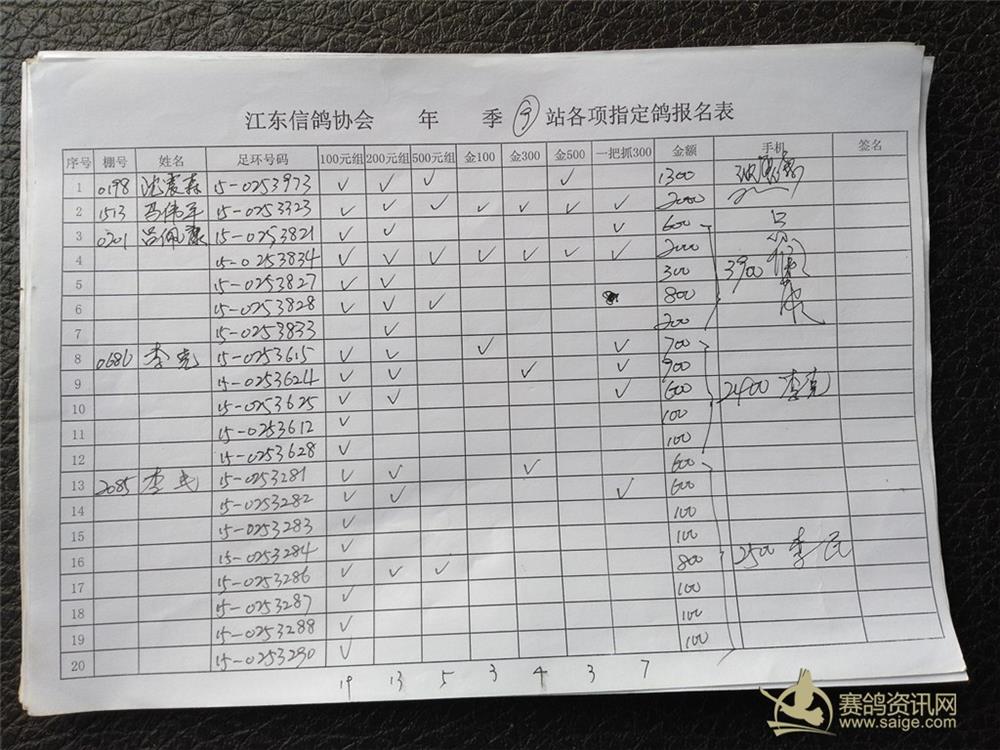 江东信鸽协会 年 季 ③ 站各项指定鸽报名表
序号 棚号 姓名 足环号码 100元组 200元组 500元组 金100 金300 金500 一把抓300 金额 手机 签名
1 0198 沈震森 15-0253973 ✓ ✓ ✓ ✓ 1300
2 1513 冯伟军 15-0253323 ✓ ✓ ✓ ✓ ✓ ✓ ✓ 2000
3 0201 吕佩康 15-0253821 ✓ ✓ ✓ 600
4 15-0253834 ✓ ✓ ✓ ✓ ✓ ✓ ✓ 2000
5 15-0253827 ✓ ✓ 300 3900
6 15-0253828 ✓ ✓ ✓ 800
7 15-0253833 ✓ 200
8 0686 李克 15-0253615 ✓ ✓ ✓ ✓ 700
9 15-0253624 ✓ ✓ ✓ ✓ 900
10 15-0253625 ✓ ✓ ✓ 600 2400 李克
11 15-0253612 ✓ 100
12 15-0253628 ✓ 100
13 2085 李民 15-0253281 ✓ ✓ ✓ 600
14 15-0253282 ✓ ✓ ✓ 600
15 15-0253283 ✓ 100
16 15-0253284 ✓ 100
17 15-0253286 ✓ ✓ ✓ 800 2500 李民
18 15-0253287 ✓ 100
19 15-0253288 ✓ 100
20 15-0253290 ✓ 100
19 13 5 3 4 3 7
赛鸽资讯网
www.saige.com